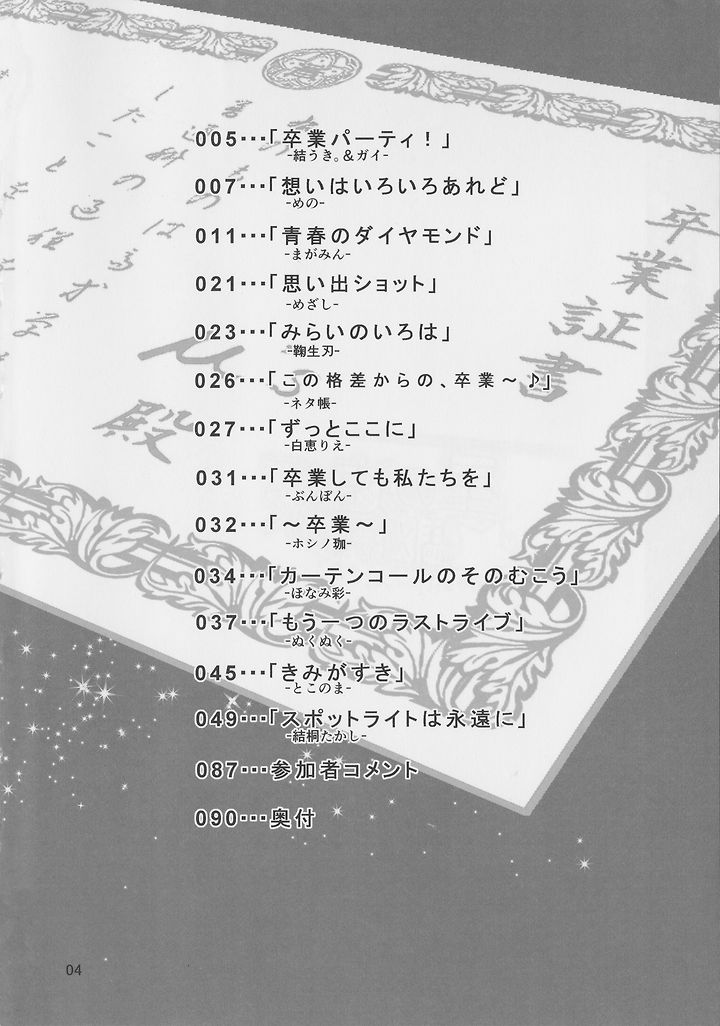 005…「卒業パーティ！」
-結うき。&ガイ-
007…「想いはいろいろあれど」
-めの-
011…「青春のダイヤモンド」
-まがみん-
021…「思い出ショット」
-めざし-
023…「みらいのいろは」
-鞠生刃-
026…「この格差からの、卒業～♪」
-ネタ帳-
027…「ずっとここに」
-白恵りえ-
031…「卒業しても私たちを」
-ぶんぼん-
032…「～卒業～」
-ホシノ珈-
034…「カーテンコールのそのむこう」
-ほなみ彩-
037…「もう一つのラストライブ」
-ぬくぬく-
045…「きみがすき」
-とこのま-
049…「スポットライトは永遠に」
-結桐たかし-
087…参加者コメント
090…奥付
卒業証書
μ's 殿
04